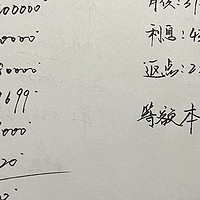 00000
0000
80000
699
000
20
0
月供:3
利息:4
返点:2
等额本